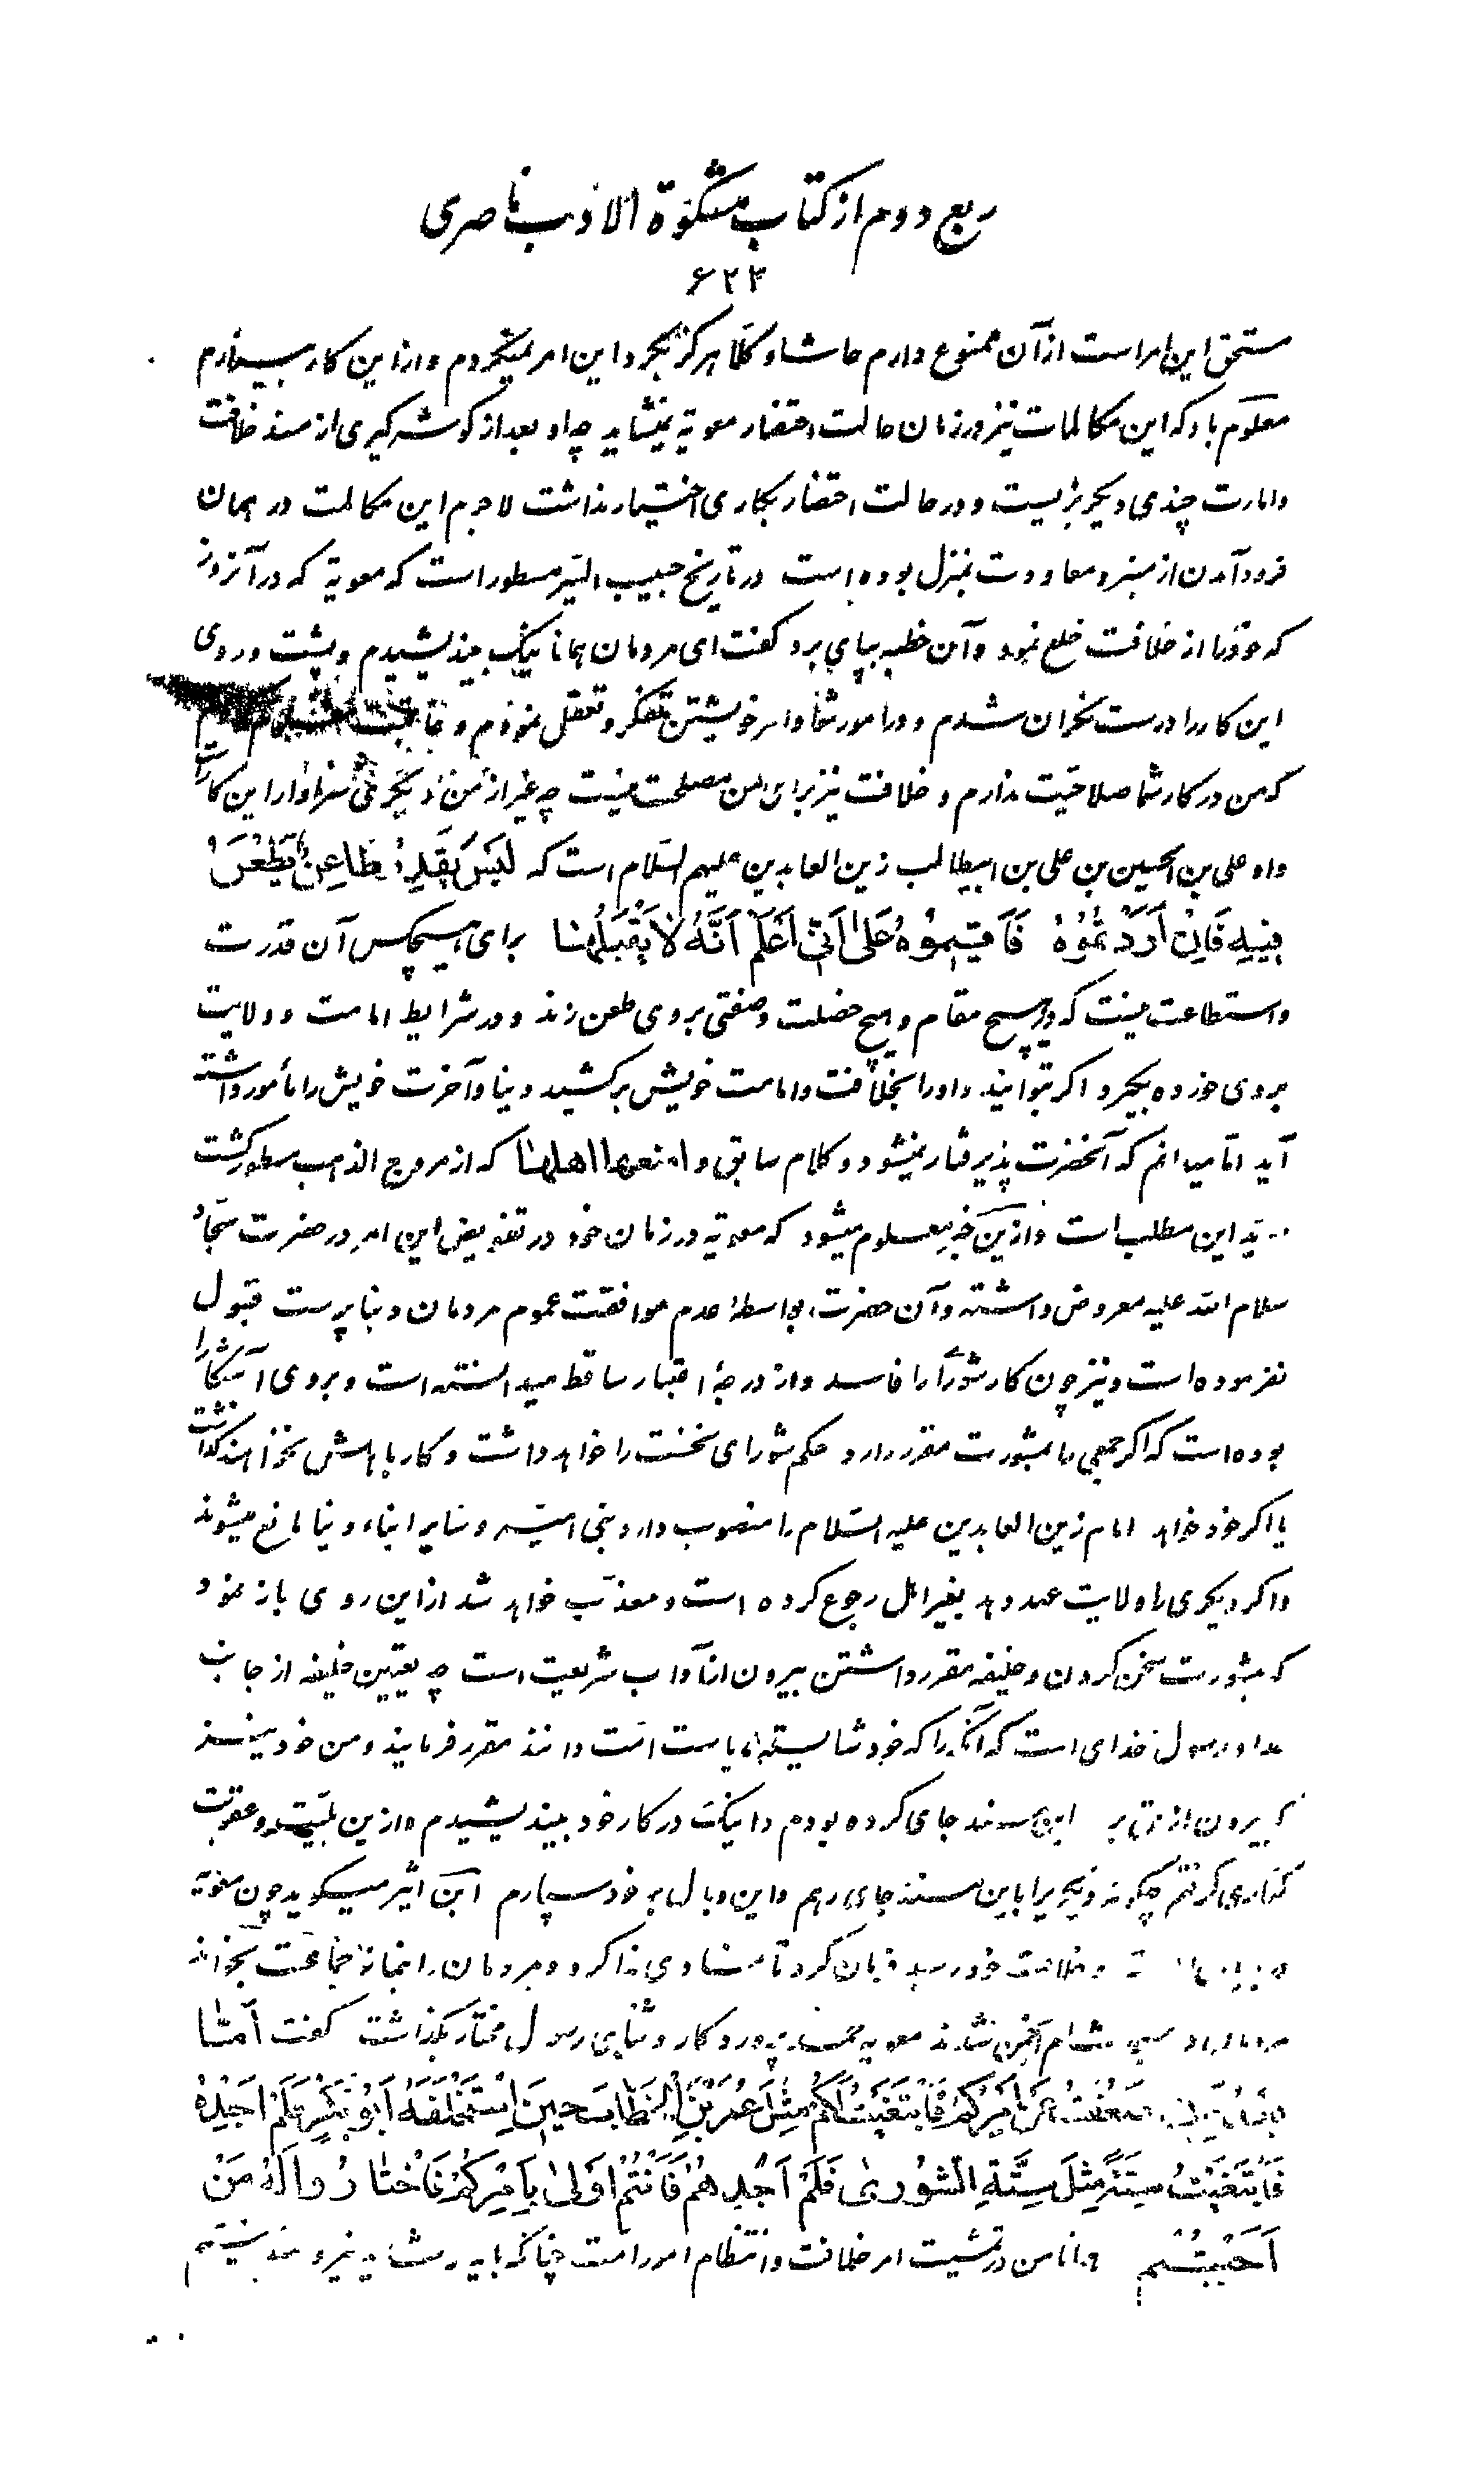 ربع دوم از کتاب مشکوة الادب ناصری
۶۲۳
مستحق این امر است از آن ممنوع دارم حاشا و کلّا هرگز بگرد این امر نمیگردم و از این کار بیزارم
معلوم باد که این مکالمات نیز در زمان حالت احتضار معویة نمیشاید چه او بعد از گوشه گیری از مسند خلافت
و امارت چندی دیگر بزیست و در حالت احتضار بکاری اختیار نداشت لاجرم این مکالمت در همان
فرود آمدن از منبر و معاودت بمنزل بوده است در تاریخ حبیب السّیر مسطور است که معویة که در آنروز
که خود را از خلافت خلع نمود و آن خطبه بپای برد گفت ای مردمان همانا نیک بیندیشیدم و پشت و روی
این کار را درست نگران شدم و در امور شما و امر خویشتن تفکر و تعقل نمودم و
که من در کار شما صلاحیّت ندارم و خلافت نیز برای من مصلحت نیست چه غیر از من دیگری سزاوار این کار است
و او علی بن الحسین بن علی بن ابیطالب زین العابدین علیهم السّلام است که لَیْسَ یَقْدِرُ طَاعِنٌ یَطْعَنُ
فِیهِ فَاِنْ اَرَدْتُمُوهُ فَاَقیمُوهُ عَلیٰ اَنّی اَعْلَمُ اَنَّهُ لاٰ یَقْبَلُهٰا برای هیچکس آن قدرت
و استطاعت نیست که در هیچ مقام و هیچ خصلت و صفتی بروی طعن زند و در شرایط امامت و ولایت
بروی خورده بگیرد اگر بتوانید او را بخلافت و امامت خویش برکشید دنیا و آخرت خویش را مأمور داشته
آید امّا میدانم که آنحضرت پذیرفتار نمیشود و کلام سابق و امنعها اهلها که از مروج الذهب مسطور گشت
این مطلب است و از این خبر معلوم میشود که معویة در زمان خود در تفویض این امر در حضرت سجّاد
سلام الله علیه معروض داشته و آن حضرت بواسطهٔ عدم موافقت عموم مردمان دنیا پرست قبول
نفرموده است و نیز چون کار شوری را فاسد و از درجهٔ اعتبار ساقط میدانسته است و بروی آشکارا
بوده است که اگر جمعی را بمشورت مقرر دارد حکم شورای نخست را خواهد داشت و کار باهلش نخواهند گذاشت
یا اگر خود خواهد امام زین العابدین علیه السّلام را منصوب دارد بنی امیّه و سایر ابناء دنیا مانع میشوند
و اگر دیگری را ولایت عهد دهد بغیر اهل رجوع کرده است و معذّب خواهد شد از این روی باز نمود
که بمشورت سخن کردن و خلیفه مقرر داشتن بیرون از آداب شریعت است چه تعیین خلیفه از جانب
خدا و رسول خدای است که آنکه را که خود شایسته ریاست امّت دانند مقرر فرمایند و من خود نیز
بیرون از حق بر این مسند جای کرده بودم و اینک در کار خود بیندیشیدم و از این بلیّت و عقوبت
کناری گرفتم چگونه دیگریرا باین مسند جای دهم و این وبال بر خود سپارم ابن اثیر میگوید چون معویة
و خلافت خود رسید فرمان کرد تا منادی ندا کرد و مردمان را بنماز جماعت بخواند
شام انجمن شدند معویه پروردگار و ثنای رسول مختار بگذاشت گفت اَمّٰا
بَعْدُ ضَعُفْتُ عَنْ اَمْرِکُمْ فَابْتَغَیْتُ لَکُمْ مِثْلَ عُمَرَ بْنِ الْخَطّٰابِ حینَ اِسْتَخْلَفَهُ اَبُو بَکْرٍ فَلَمْ اَجِدْهُ
فَابْتَغَیْتُ سِتَّةً مِثْلَ سِتَّةِ الشُّوریٰ فَلَمْ اَجِدْهُمْ فَاَنْتُمْ اَوْلیٰ بِاَمْرِکُمْ فَاخْتٰارُوا لَهُ مَنْ
اَحْبَبْتُمْ همانا من در تمشیت امر خلافت و انتظام امور امّت چنانکه باید و شاید نیرومند نیستم